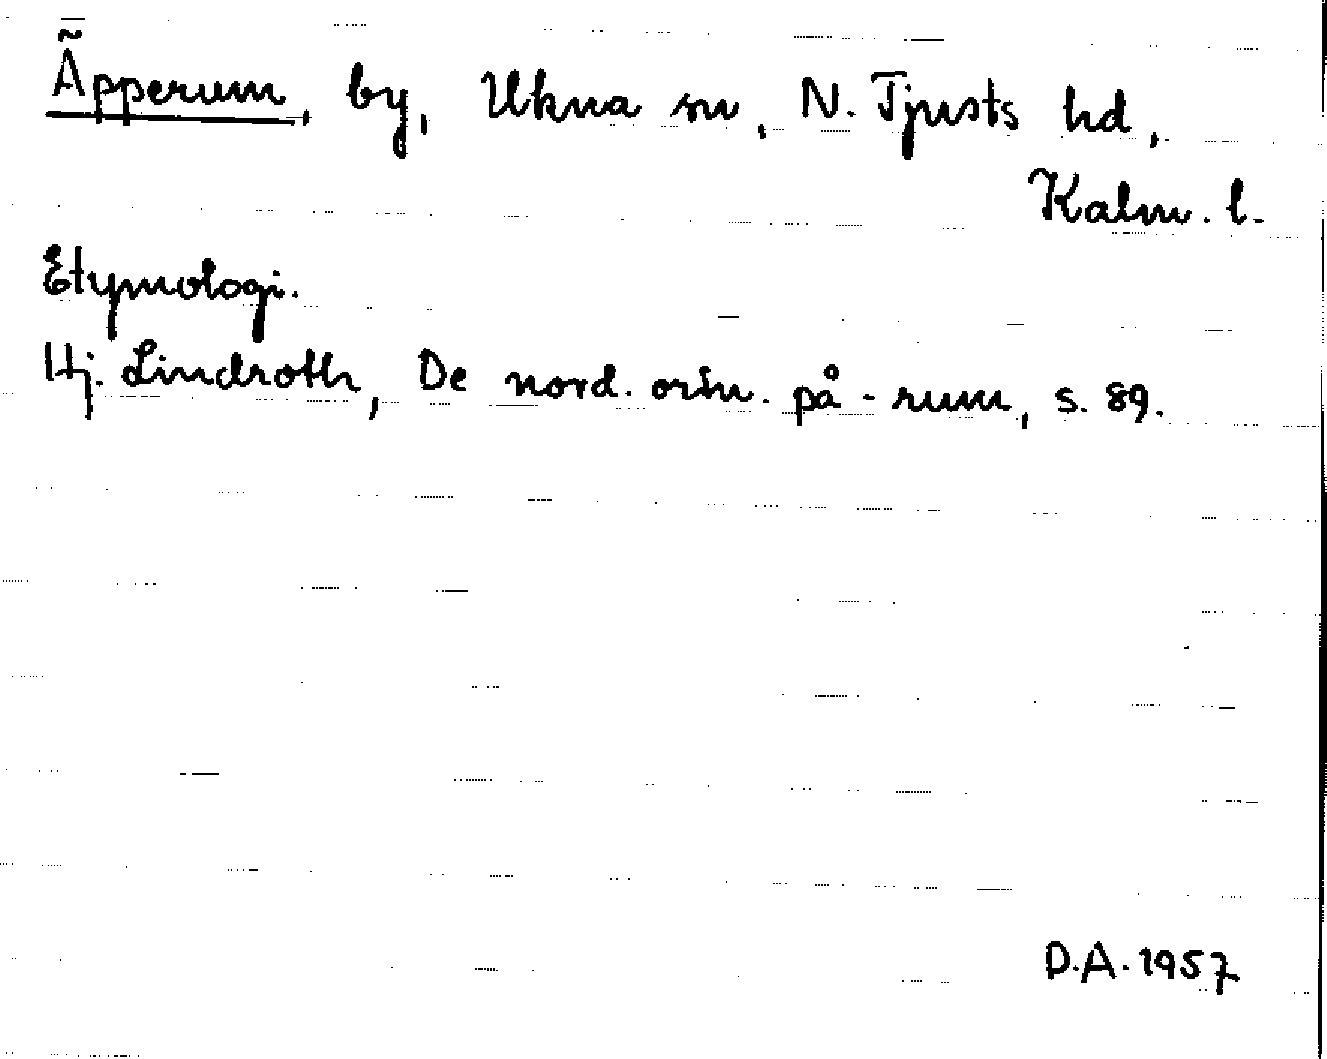 Äpperum, by, Ukna sn, N. Tjusts hd,
Kalm. l.
Etymologi.
Hj. Lindroth, De nord. ortn. på -rum, s. 89.
D.A. 1957